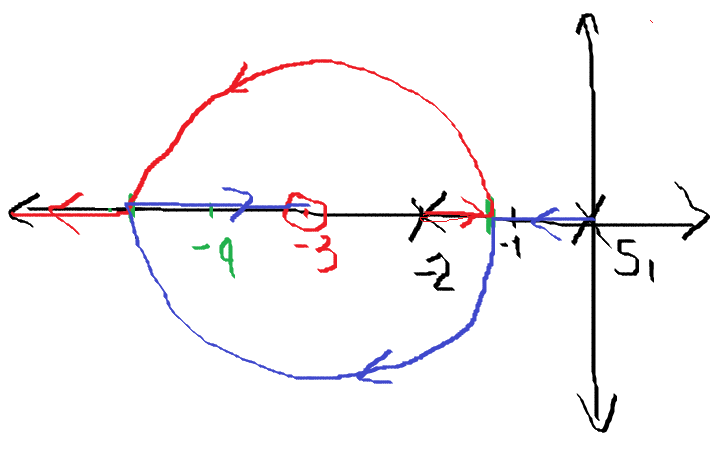 -4 -3 -2 -1 S₁